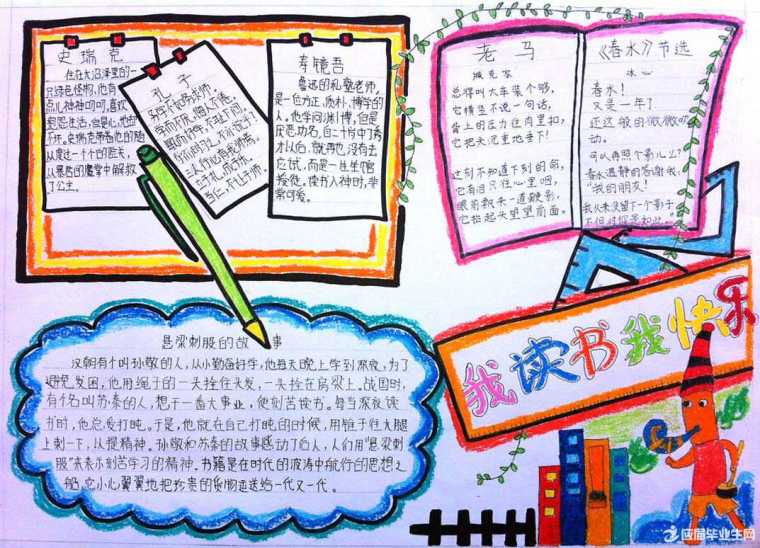 史瑞克
住在大沼泽里的一
只绿色怪物,他有
点儿神神叨叨,喜欢
从
公主。
孔子
三人行必有我师焉
当仁不让于师
寿镜吾
鲁迅的私塾老师,
是一位方正、质朴、博学的
人。他学问渊博,但是
厌恶功名,自二十岁中了秀
才以后,就再也没有去
应试,而是一生坐馆
授徒。读书入神时,非
常可爱。
老马
臧克家
总得叫大车装个够,
它横竖不说一句话,
背上的压力往肉里扣,
它把头沉重地垂下!
这刻不知道下刻的命,
它有泪只往心里咽,
眼前飘来一道鞭影,
它抬起头望望前面。
《春水》节选
冰心
春水!
又是一年了
还这般的微微吹
动。
可以再照个影儿么?
春水温静的答谢我:
“我的朋友!
我从来未留下一个影子
不但对你是如此。”
我读书我快乐
悬梁刺股的故事
汉朝有个叫孙敬的人,从小勤奋好学,他每天晚上学到深夜,为了
避免发困,他用绳子的一头拴住头发,一头拴在房梁上。战国时,
有个名叫苏秦的人,想干一番大事业,便刻苦读书。每当深夜读
书时,他总爱打盹。于是,他就在自己打盹的时候,用锥子往大腿
上刺一下,以提精神。孙敬和苏秦的故事感动了后人,人们用“悬梁刺
股”来表示刻苦学习的精神。书籍是在时代的波涛中航行的思想之
船,它小心翼翼地把珍贵的货物运送给一代又一代。
应届毕业生网